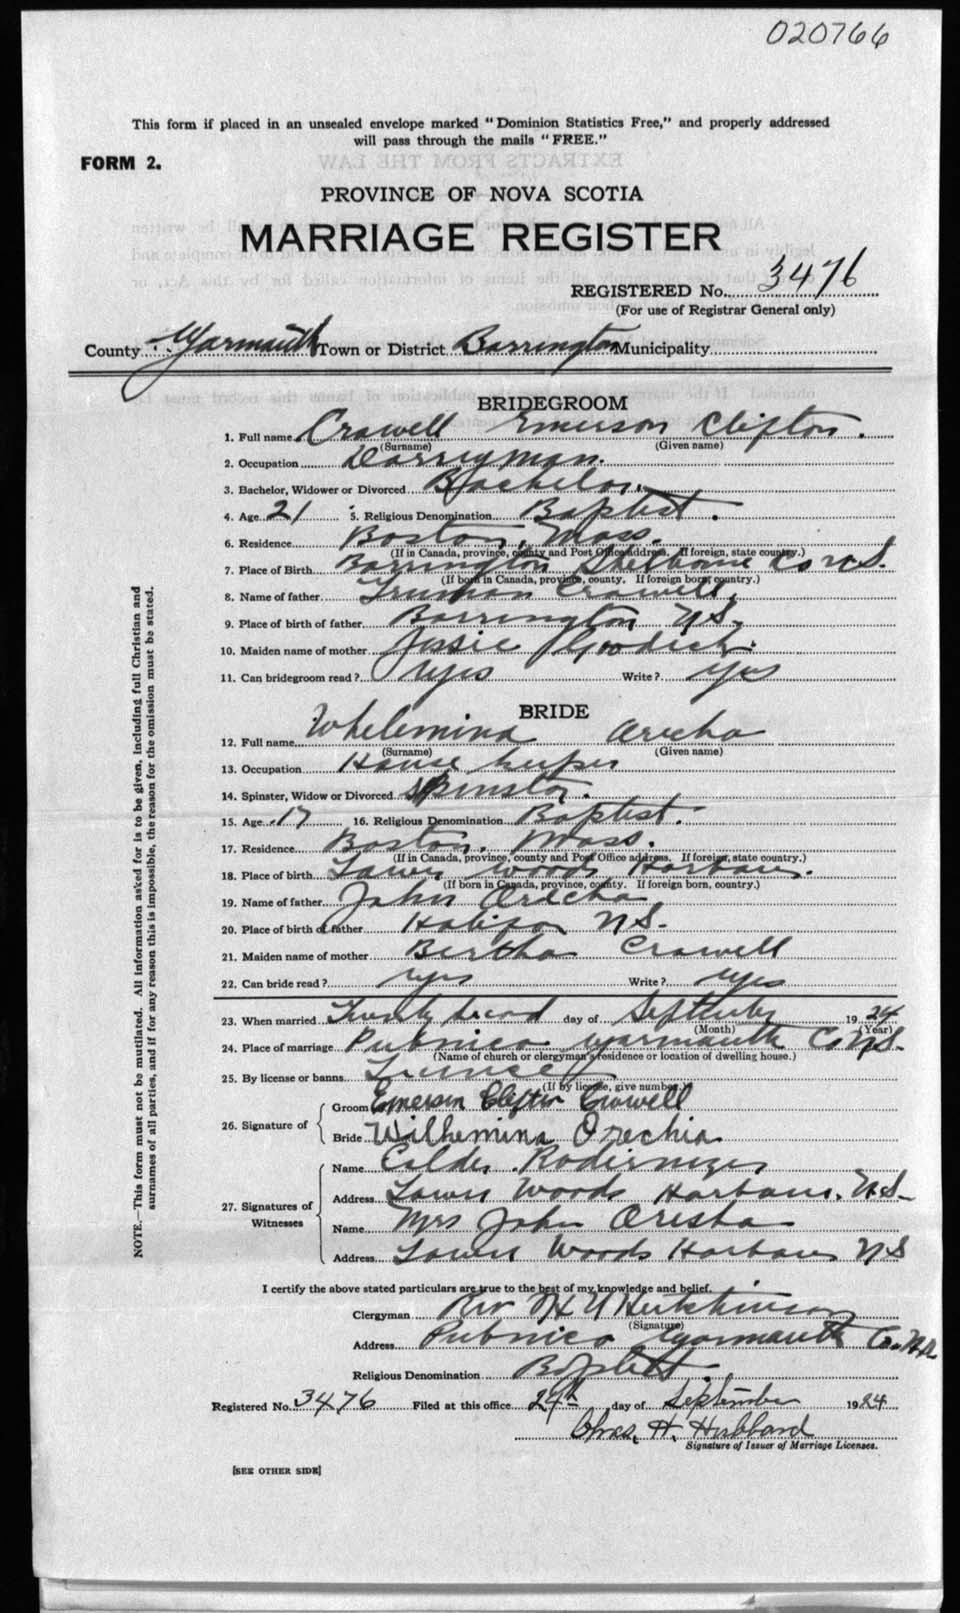 020766
This form if placed in an unsealed envelope marked "Dominion Statistics Free," and properly addressed
will pass through the mails "FREE."
FORM 2.
PROVINCE OF NOVA SCOTIA
MARRIAGE REGISTER
REGISTERED No. 3476
(For use of Registrar General only)
County Yarmouth Town or District Barrington Municipality
BRIDEGROOM
1. Full name Crowell Emerson Clifton.
(Surname) (Given name)
2. Occupation
3. Bachelor, Widower or Divorced Bachelor.
4. Age 21 5. Religious Denomination Baptist.
6. Residence Boston, Mass.
(If in Canada, province, county and Post Office address. If foreign, state country.)
7. Place of Birth Barrington Shelburne Co N.S.
(If born in Canada, province, county. If foreign born, country.)
8. Name of father Truman Crowell.
9. Place of birth of father Barrington N.S.
10. Maiden name of mother Jessie
11. Can bridegroom read? Yes Write? yes
BRIDE
12. Full name Whelemina Orecha
(Surname) (Given name)
13. Occupation House keeper
14. Spinster, Widow or Divorced Spinster.
15. Age 17 16. Religious Denomination Baptist.
17. Residence Boston, Mass.
(If in Canada, province, county and Post Office address. If foreign, state country.)
18. Place of birth Lower Woods Harbour.
(If born in Canada, province, county. If foreign born, country.)
19. Name of father John Orecha
20. Place of birth of father Halifax N.S.
21. Maiden name of mother Bertha Crowell
22. Can bride read? yes Write? yes
23. When married Twenty second day of September 1924
(Month) (Year)
24. Place of marriage Pubnico Yarmouth Co N.S.
(Name of church or clergyman's residence or location of dwelling house.)
25. By license or banns License
(If by license, give number.)
26. Signature of
Groom Emerson Clifton Crowell
Bride Wilhemina Orechia
27. Signatures of Witnesses
Name
Address Lower Woods Harbour. N.S.
Name Mrs John Orecha
Address Lower Woods Harbour N.S
I certify the above stated particulars are true to the best of my knowledge and belief.
Clergyman Rev Hutchinson
(Signature)
Address Pubnico Yarmouth Co. N.S.
Religious Denomination Baptist.
Registered No. 3476 Filed at this office 24th day of September 1924
Chas. H. Hubbard
Signature of Issuer of Marriage Licenses.
[SEE OTHER SIDE]
NOTE.—This form must not be mutilated. All information asked for is to be given, including full Christian and
surnames of all parties, and if for any reason this is impossible, the reason for the omission must be stated.